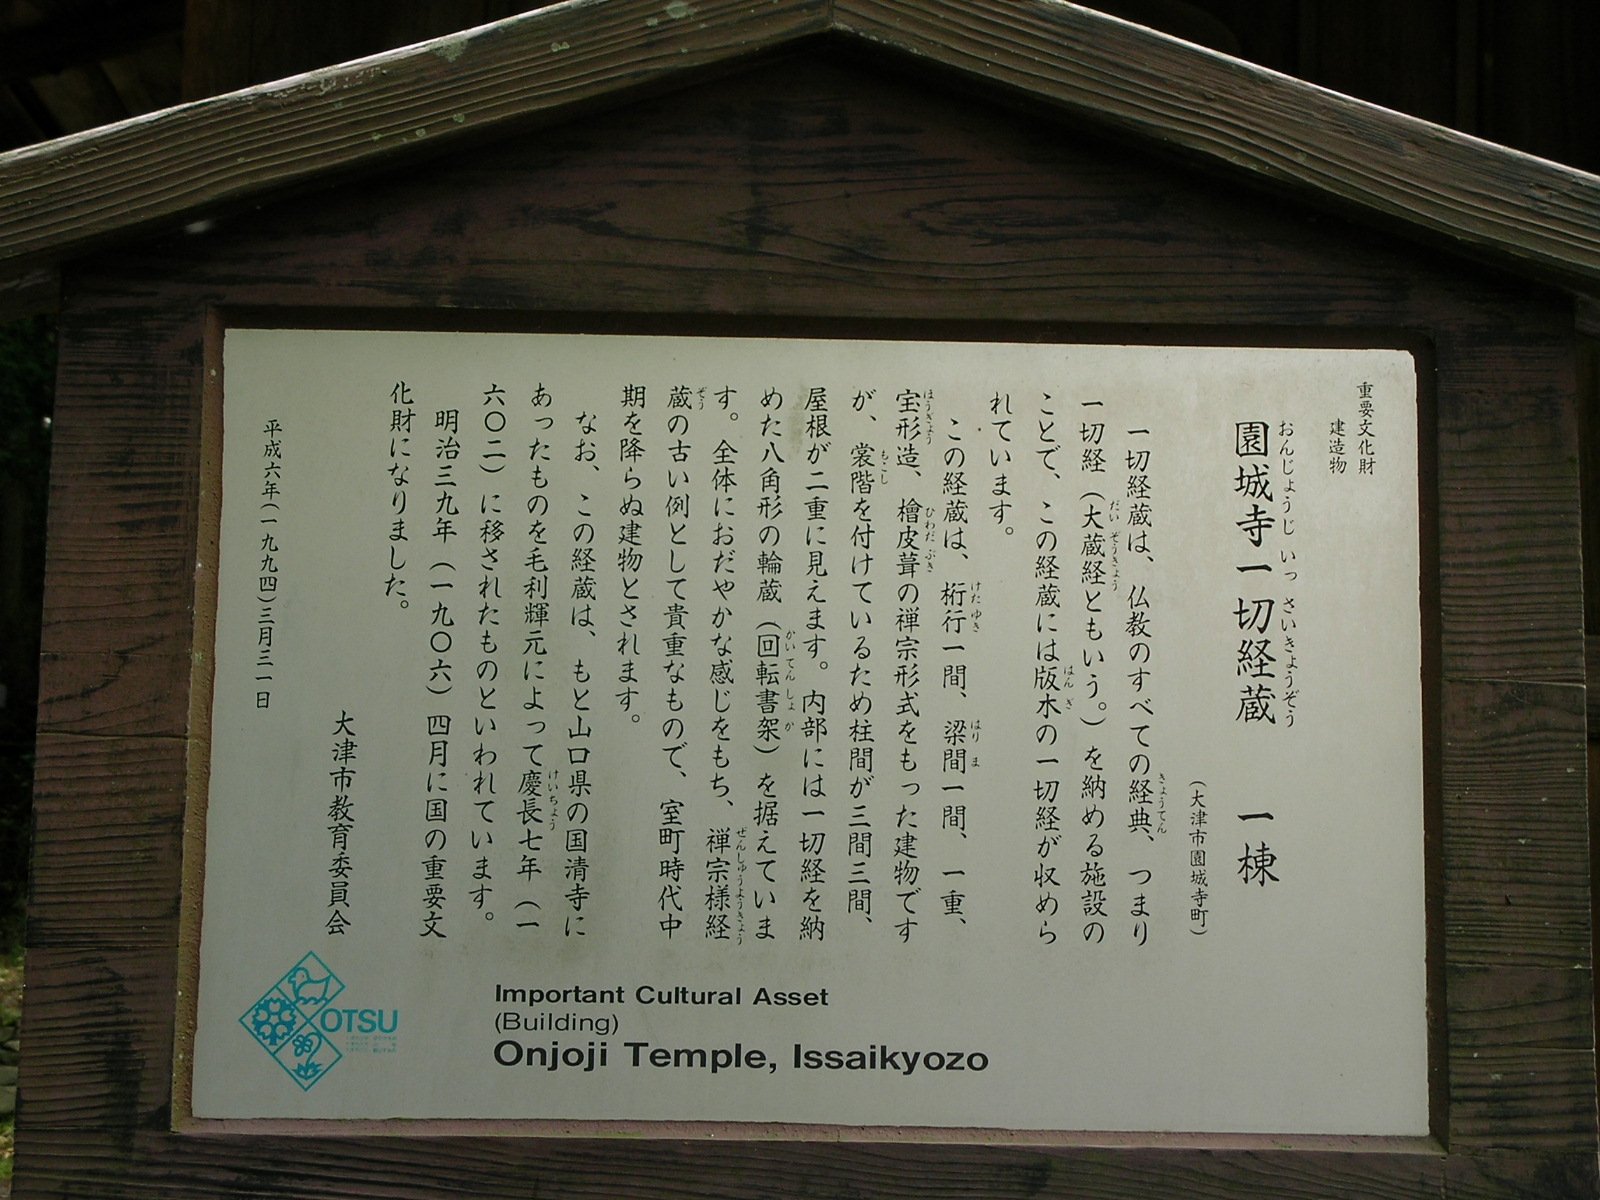 重要文化財
建造物
園城寺一切経蔵　一棟
おんじょうじ いっさいきょうぞう
（大津市園城寺町）
一切経蔵は、仏教のすべての経典、つまり
きょうてん
一切経（大蔵経ともいう。）を納める施設の
だいぞうきょう
ことで、この経蔵には版木の一切経が収めら
はんぎ
れています。
この経蔵は、桁行一間、梁間一間、一重、
けたゆき はりま
宝形造、檜皮葺の禅宗形式をもった建物です
ほうぎょう ひわだぶき
が、裳階を付けているため柱間が三間三間、
もこし
屋根が二重に見えます。内部には一切経を納
めた八角形の輪蔵（回転書架）を据えていま
かいてんしょか
す。全体におだやかな感じをもち、禅宗様経
ぜんしゅうようきょう
蔵の古い例として貴重なもので、室町時代中
ぞう
期を降らぬ建物とされます。
なお、この経蔵は、もと山口県の国清寺に
あったものを毛利輝元によって慶長七年（一
けいちょう
六〇二）に移されたものといわれています。
明治三九年（一九〇六）四月に国の重要文
化財になりました。
大津市教育委員会
平成六年（一九九四）三月三一日
OTSU
Important Cultural Asset
(Building)
Onjoji Temple, Issaikyozo